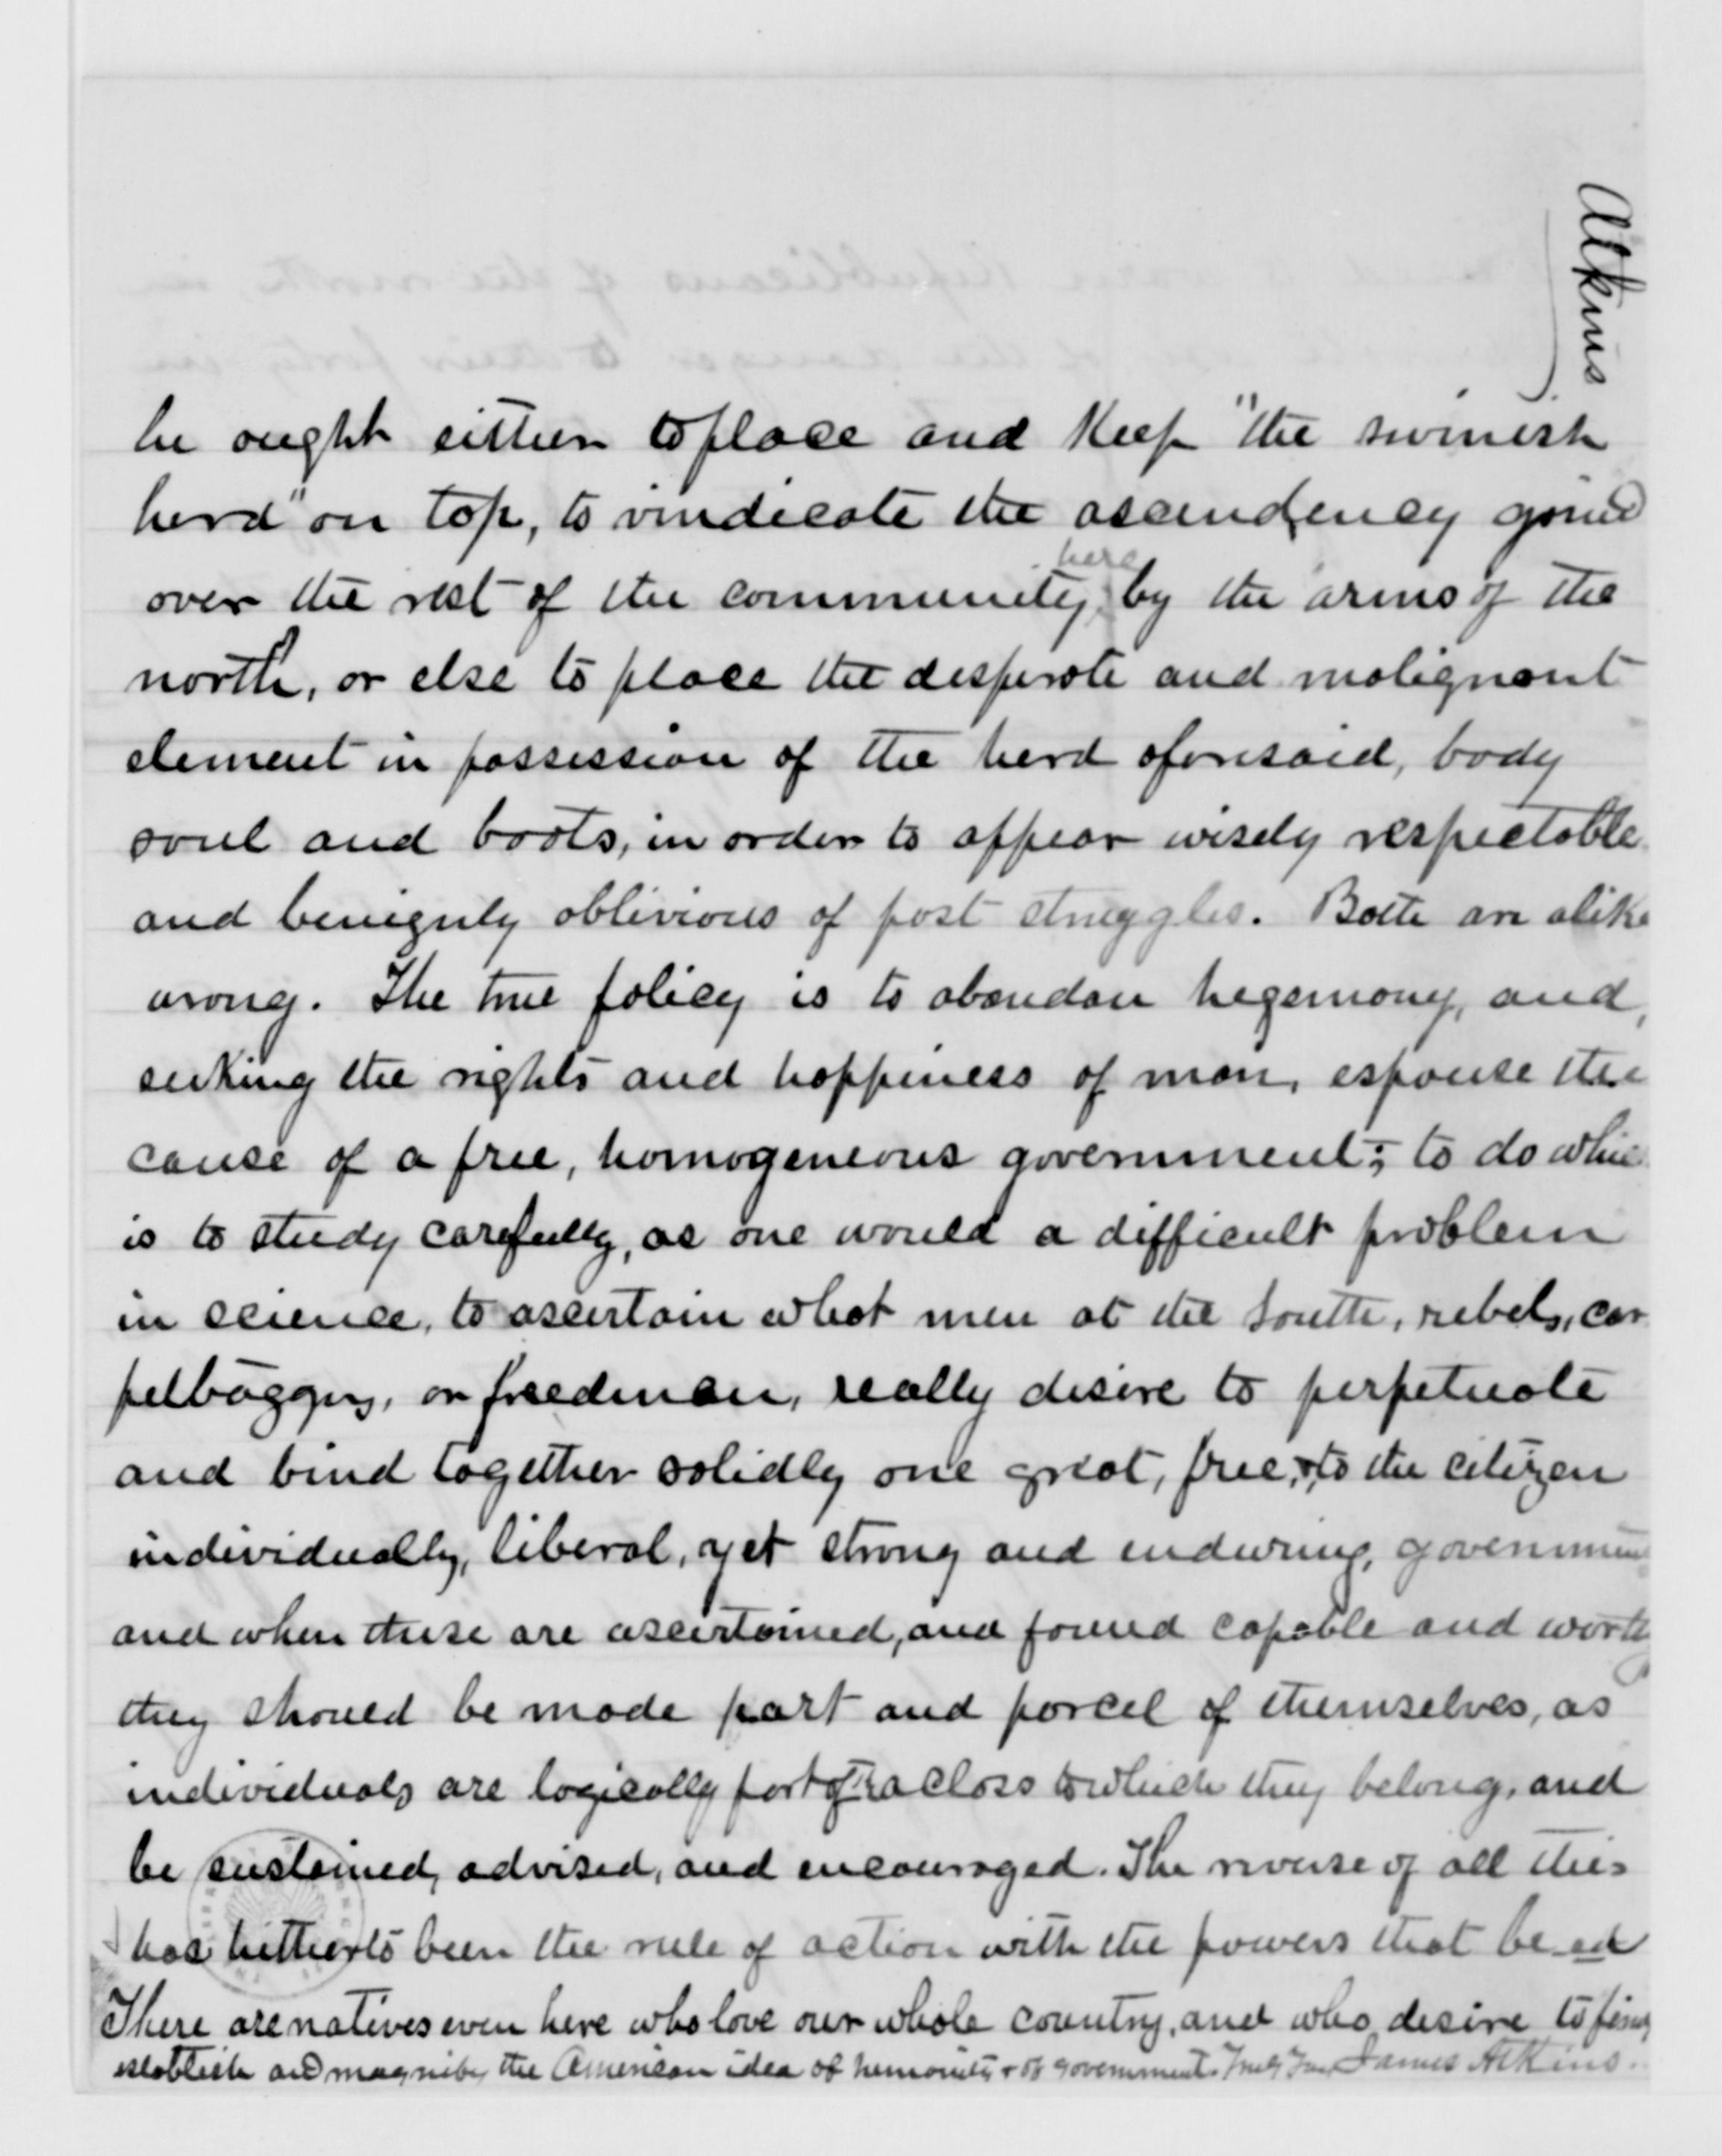 Atkins
he ought either to place and Keep "the swinish
herd" on top, to vindicate the ascendency gained
over the rest of the community here by the arms of the
north, or else to place the desperate and malignant
element in possession of the herd aforesaid, body
soul and boots, in order to appear wisely respectable
and benignly oblivious of past struggles. Both are alike
wrong. The true policy is to abandon hegemony, and,
seeking the rights and happiness of man, espouse the
cause of a free, homogeneous government; to do which
is to study carefully, as one would a difficult problem
in science, to ascertain what men at the South, rebels, car
petbaggers, or freedmen, really desire to perpetuate
and bind together solidly one great, free, to the citizen
individually, liberal, yet strong and enduring, government
and when these are ascertained, and found capable and worth
they should be made part and parcel of themselves, as
individuals are logically part of a class to which they belong, and
be sustained, advised, and encouraged. The reverse of all this
has hitherto been the rule of action with the powers that be
There are natives even here who love our whole country, and who desire to
establish and magnify the American idea of humanity & of government. James Atkins.